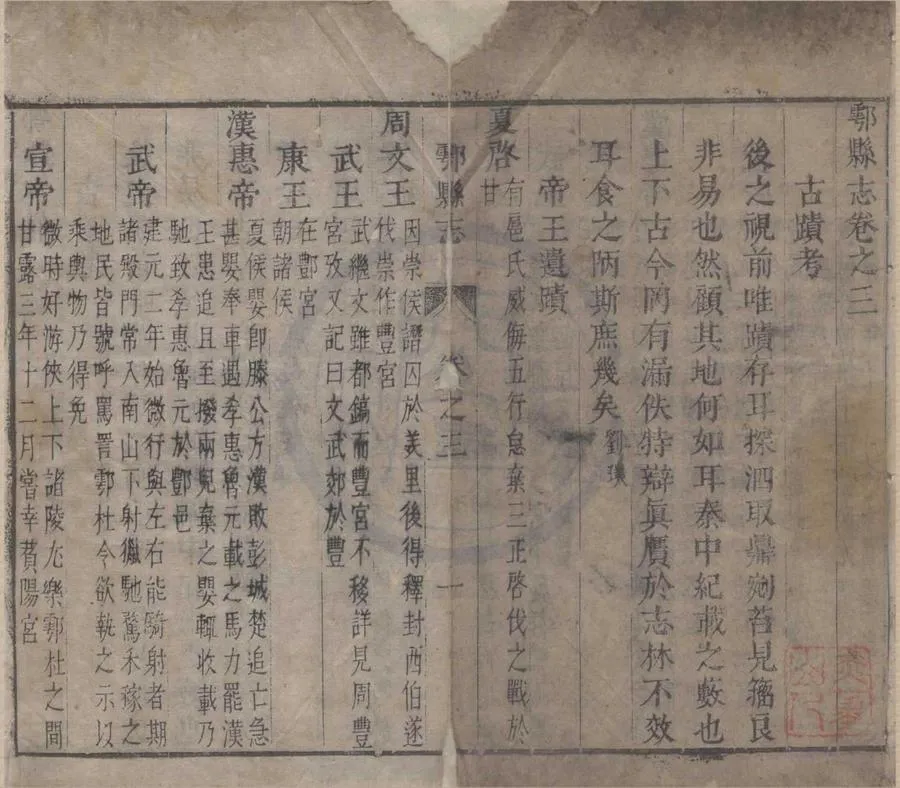 鄠縣志卷之三
古蹟考
後之視前唯蹟存耳探泗取鼎剜苔見籀良
非易也然顧其地何如耳秦中紀載之藪也
上下古今罔有漏佚特辯眞贋於志林不效
耳食之陋斯庶幾矣 劉璞
帝王遺蹟
夏啓 有扈氏威侮五行怠棄三正啓伐之戰於
甘
鄠縣志 卷之三 一
周文王 因崇侯譖囚於羑里後得釋封西伯遂
伐崇作豐宮
武王 武繼文雖都鎬而豐宮不移詳見周豐
宮攷又記曰文武郊於豐
康王 在酆宮
朝諸侯
漢惠帝 夏侯嬰即滕公方漢敗彭城楚追亡急
甚嬰奉車遇孝惠魯元載之馬力罷漢
王患追且至撥兩兒棄之嬰輒收載乃
馳致孝惠魯元於酆邑
武帝 建元二年始微行與左右能騎射者期
諸殿門常入南山下射獵馳騖禾稼之
地民皆號呼罵詈鄠杜令欲執之示以
乘輿物乃得免
宣帝 微時好游俠上下諸陵尢樂鄠杜之間
甘露三年十二月嘗幸萯陽宮